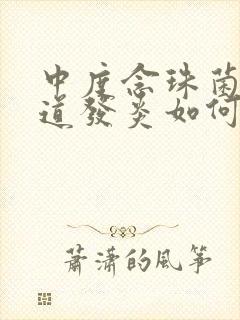 中度念珠菌
道發炎如何
蕭瀟的風箏